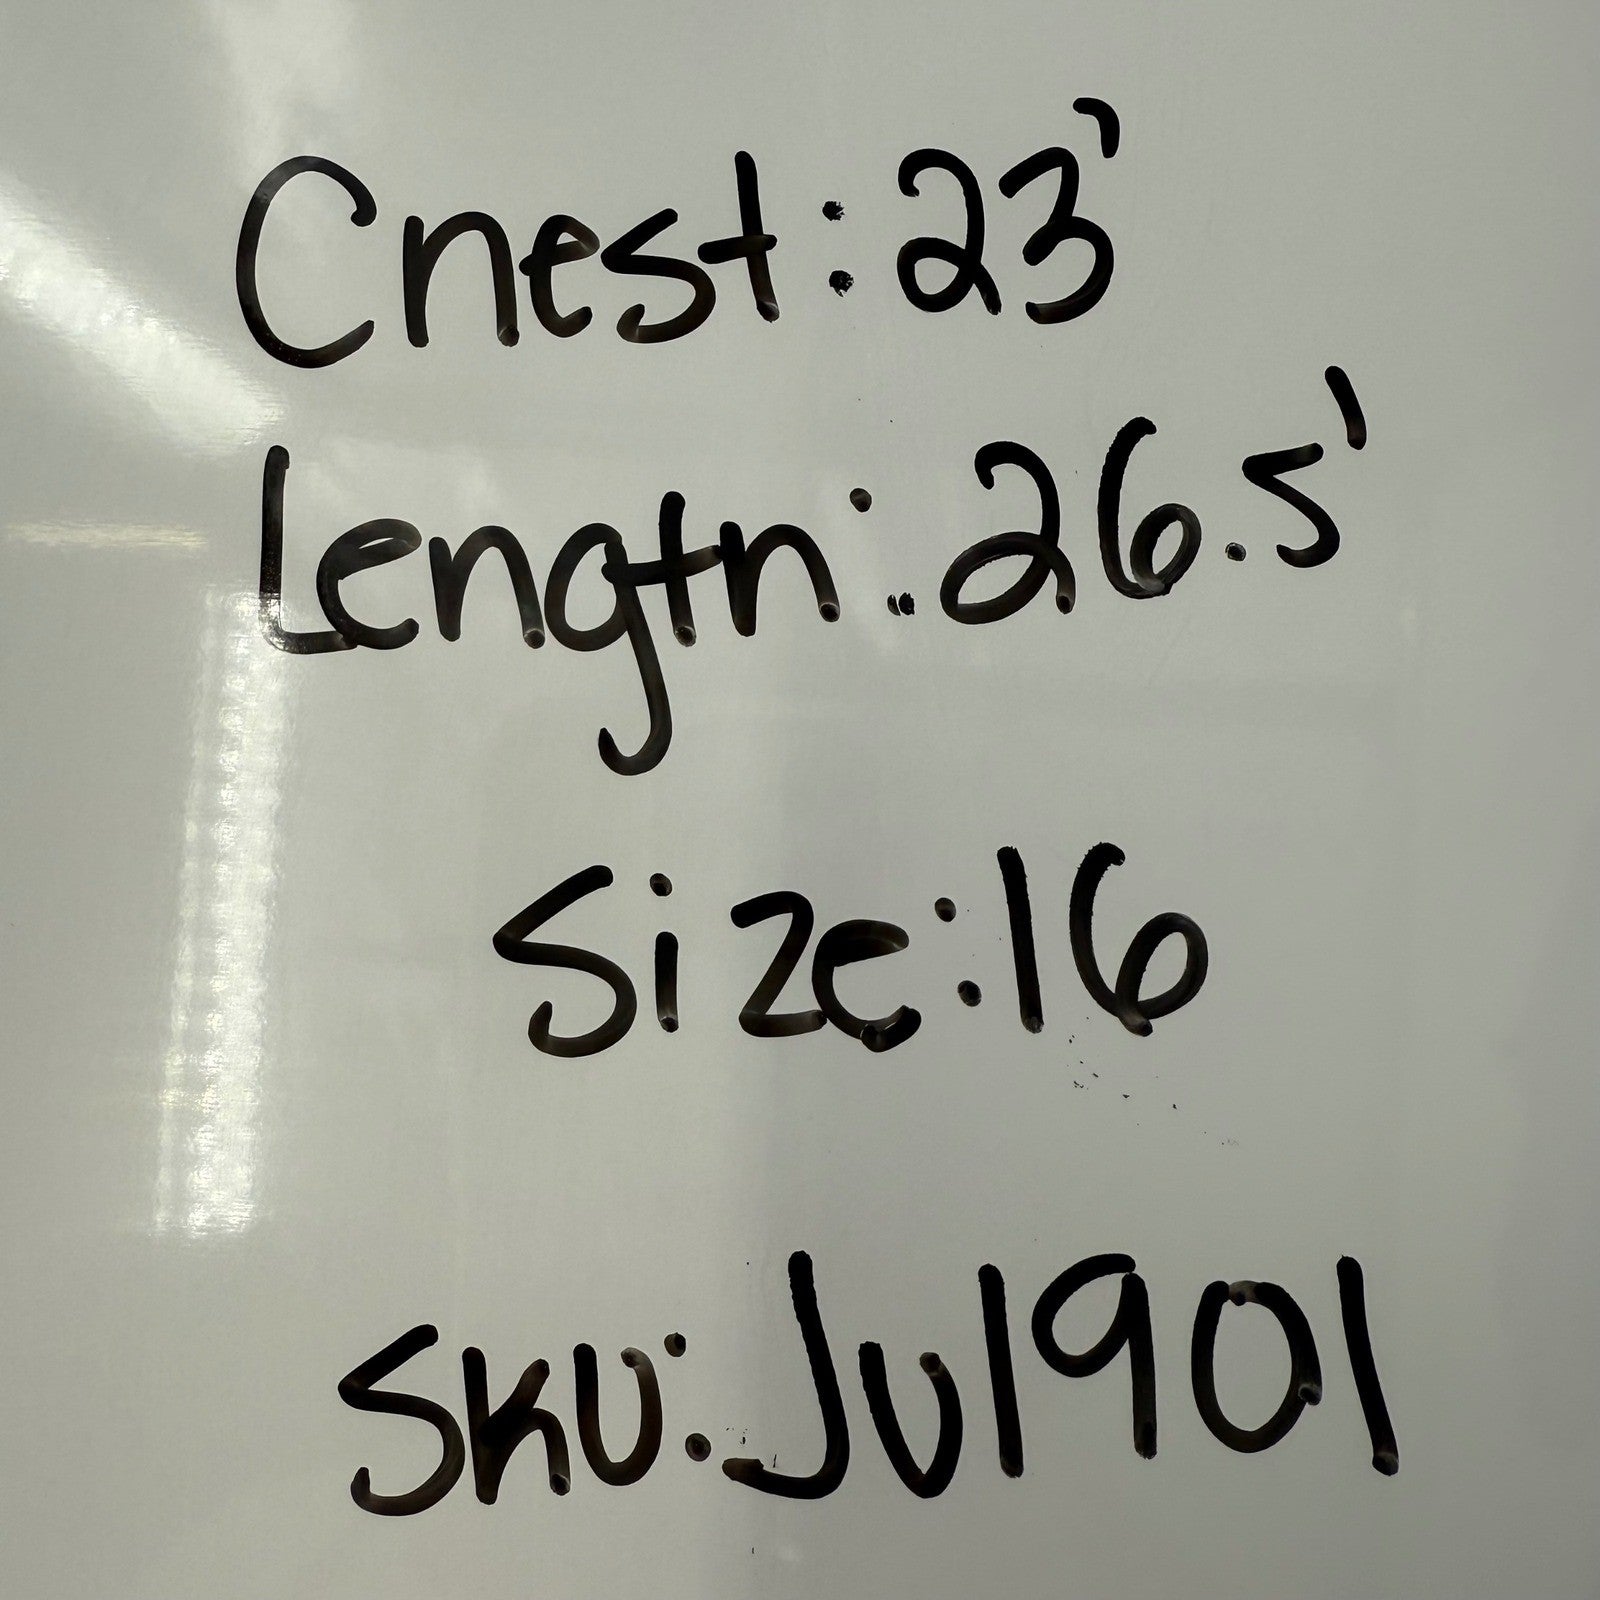 Chest: 23'
Length: 26.5'
Size: 16
SKU: JU1901